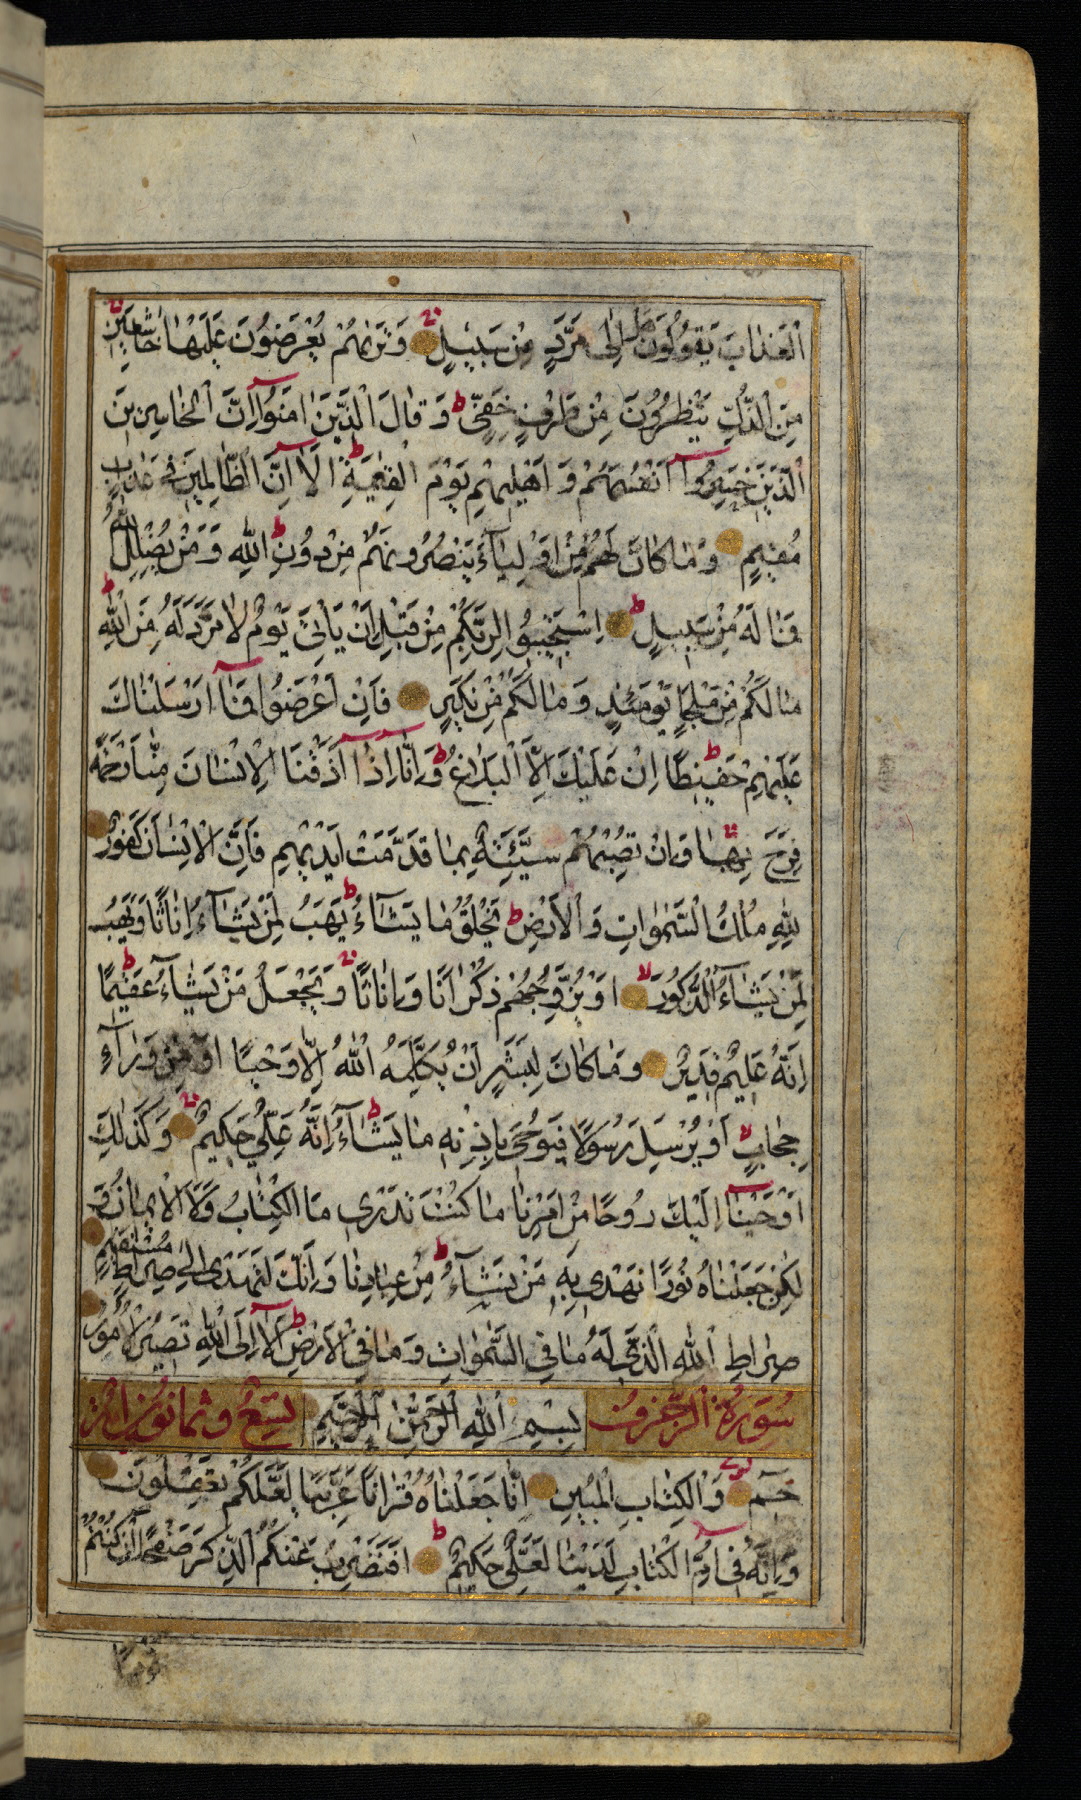 الْعَذَابَ يَقُولُونَ هَلْ إِلَىٰ مَرَدٍّ مِنْ سَبِيلٍ وَتَرَاهُمْ يُعْرَضُونَ عَلَيْهَا خَاشِعِينَ
مِنَ الذُّلِّ يَنْظُرُونَ مِنْ طَرْفٍ خَفِيٍّ ط وَقَالَ الَّذِينَ اٰمَنُوا إِنَّ الْخَاسِرِينَ
الَّذِينَ خَسِرُوا أَنْفُسَهُمْ وَأَهْلِيهِمْ يَوْمَ الْقِيٰمَةِ ط أَلَا إِنَّ الظَّالِمِينَ فِي عَذَابٍ
مُقِيمٍ وَمَا كَانَ لَهُمْ مِنْ أَوْلِيَاءَ يَنْصُرُونَهُمْ مِنْ دُونِ اللهِ ط وَمَنْ يُضْلِلِ اللهُ
فَمَا لَهُ مِنْ سَبِيلٍ ط اِسْتَجِيبُوا لِرَبِّكُمْ مِنْ قَبْلِ أَنْ يَأْتِيَ يَوْمٌ لَا مَرَدَّ لَهُ مِنَ اللهِ ط
مَا لَكُمْ مِنْ مَلْجَإٍ يَوْمَئِذٍ وَمَا لَكُمْ مِنْ نَكِيرٍ فَإِنْ أَعْرَضُوا فَمَا أَرْسَلْنَاكَ
عَلَيْهِمْ حَفِيظًا إِنْ عَلَيْكَ إِلَّا الْبَلَاغُ ط وَإِنَّا إِذَا أَذَقْنَا الْإِنْسَانَ مِنَّا رَحْمَةً
فَرِحَ بِهَا وَإِنْ تُصِبْهُمْ سَيِّئَةٌ بِمَا قَدَّمَتْ أَيْدِيهِمْ فَإِنَّ الْإِنْسَانَ كَفُورٌ
لِلّٰهِ مُلْكُ السَّمٰوَاتِ وَالْأَرْضِ ط يَخْلُقُ مَا يَشَاءُ ط يَهَبُ لِمَنْ يَشَاءُ إِنَاثًا وَيَهَبُ
لِمَنْ يَشَاءُ الذُّكُورَ لا أَوْ يُزَوِّجُهُمْ ذُكْرَانًا وَإِنَاثًا وَيَجْعَلُ مَنْ يَشَاءُ عَقِيمًا ط
إِنَّهُ عَلِيمٌ قَدِيرٌ وَمَا كَانَ لِبَشَرٍ أَنْ يُكَلِّمَهُ اللهُ إِلَّا وَحْيًا أَوْ مِنْ وَرَاءِ
حِجَابٍ أَوْ يُرْسِلَ رَسُولًا فَيُوحِيَ بِإِذْنِهِ مَا يَشَاءُ ط إِنَّهُ عَلِيٌّ حَكِيمٌ وَكَذٰلِكَ
أَوْحَيْنَا إِلَيْكَ رُوحًا مِنْ أَمْرِنَا مَا كُنْتَ تَدْرِي مَا الْكِتَابُ وَلَا الْإِيمَانُ وَ
لٰكِنْ جَعَلْنَاهُ نُورًا نَهْدِي بِهِ مَنْ نَشَاءُ مِنْ عِبَادِنَا ط وَإِنَّكَ لَتَهْدِي إِلَىٰ صِرَاطٍ مُسْتَقِيمٍ
صِرَاطِ اللهِ الَّذِي لَهُ مَا فِي السَّمٰوَاتِ وَمَا فِي الْأَرْضِ ط أَلَا إِلَى اللهِ تَصِيرُ الْأُمُورُ
سُورَةُ الزُّخْرُفِ بِسْمِ اللهِ الرَّحْمٰنِ الرَّحِيمِ تِسْعٌ وَثَمَانُونَ اٰيَة
حٰمٓ وَالْكِتَابِ الْمُبِينِ إِنَّا جَعَلْنَاهُ قُرْاٰنًا عَرَبِيًّا لَعَلَّكُمْ تَعْقِلُونَ
وَإِنَّهُ فِي أُمِّ الْكِتَابِ لَدَيْنَا لَعَلِيٌّ حَكِيمٌ ط أَفَنَضْرِبُ عَنْكُمُ الذِّكْرَ صَفْحًا أَنْ كُنْتُمْ
قَوْمًا